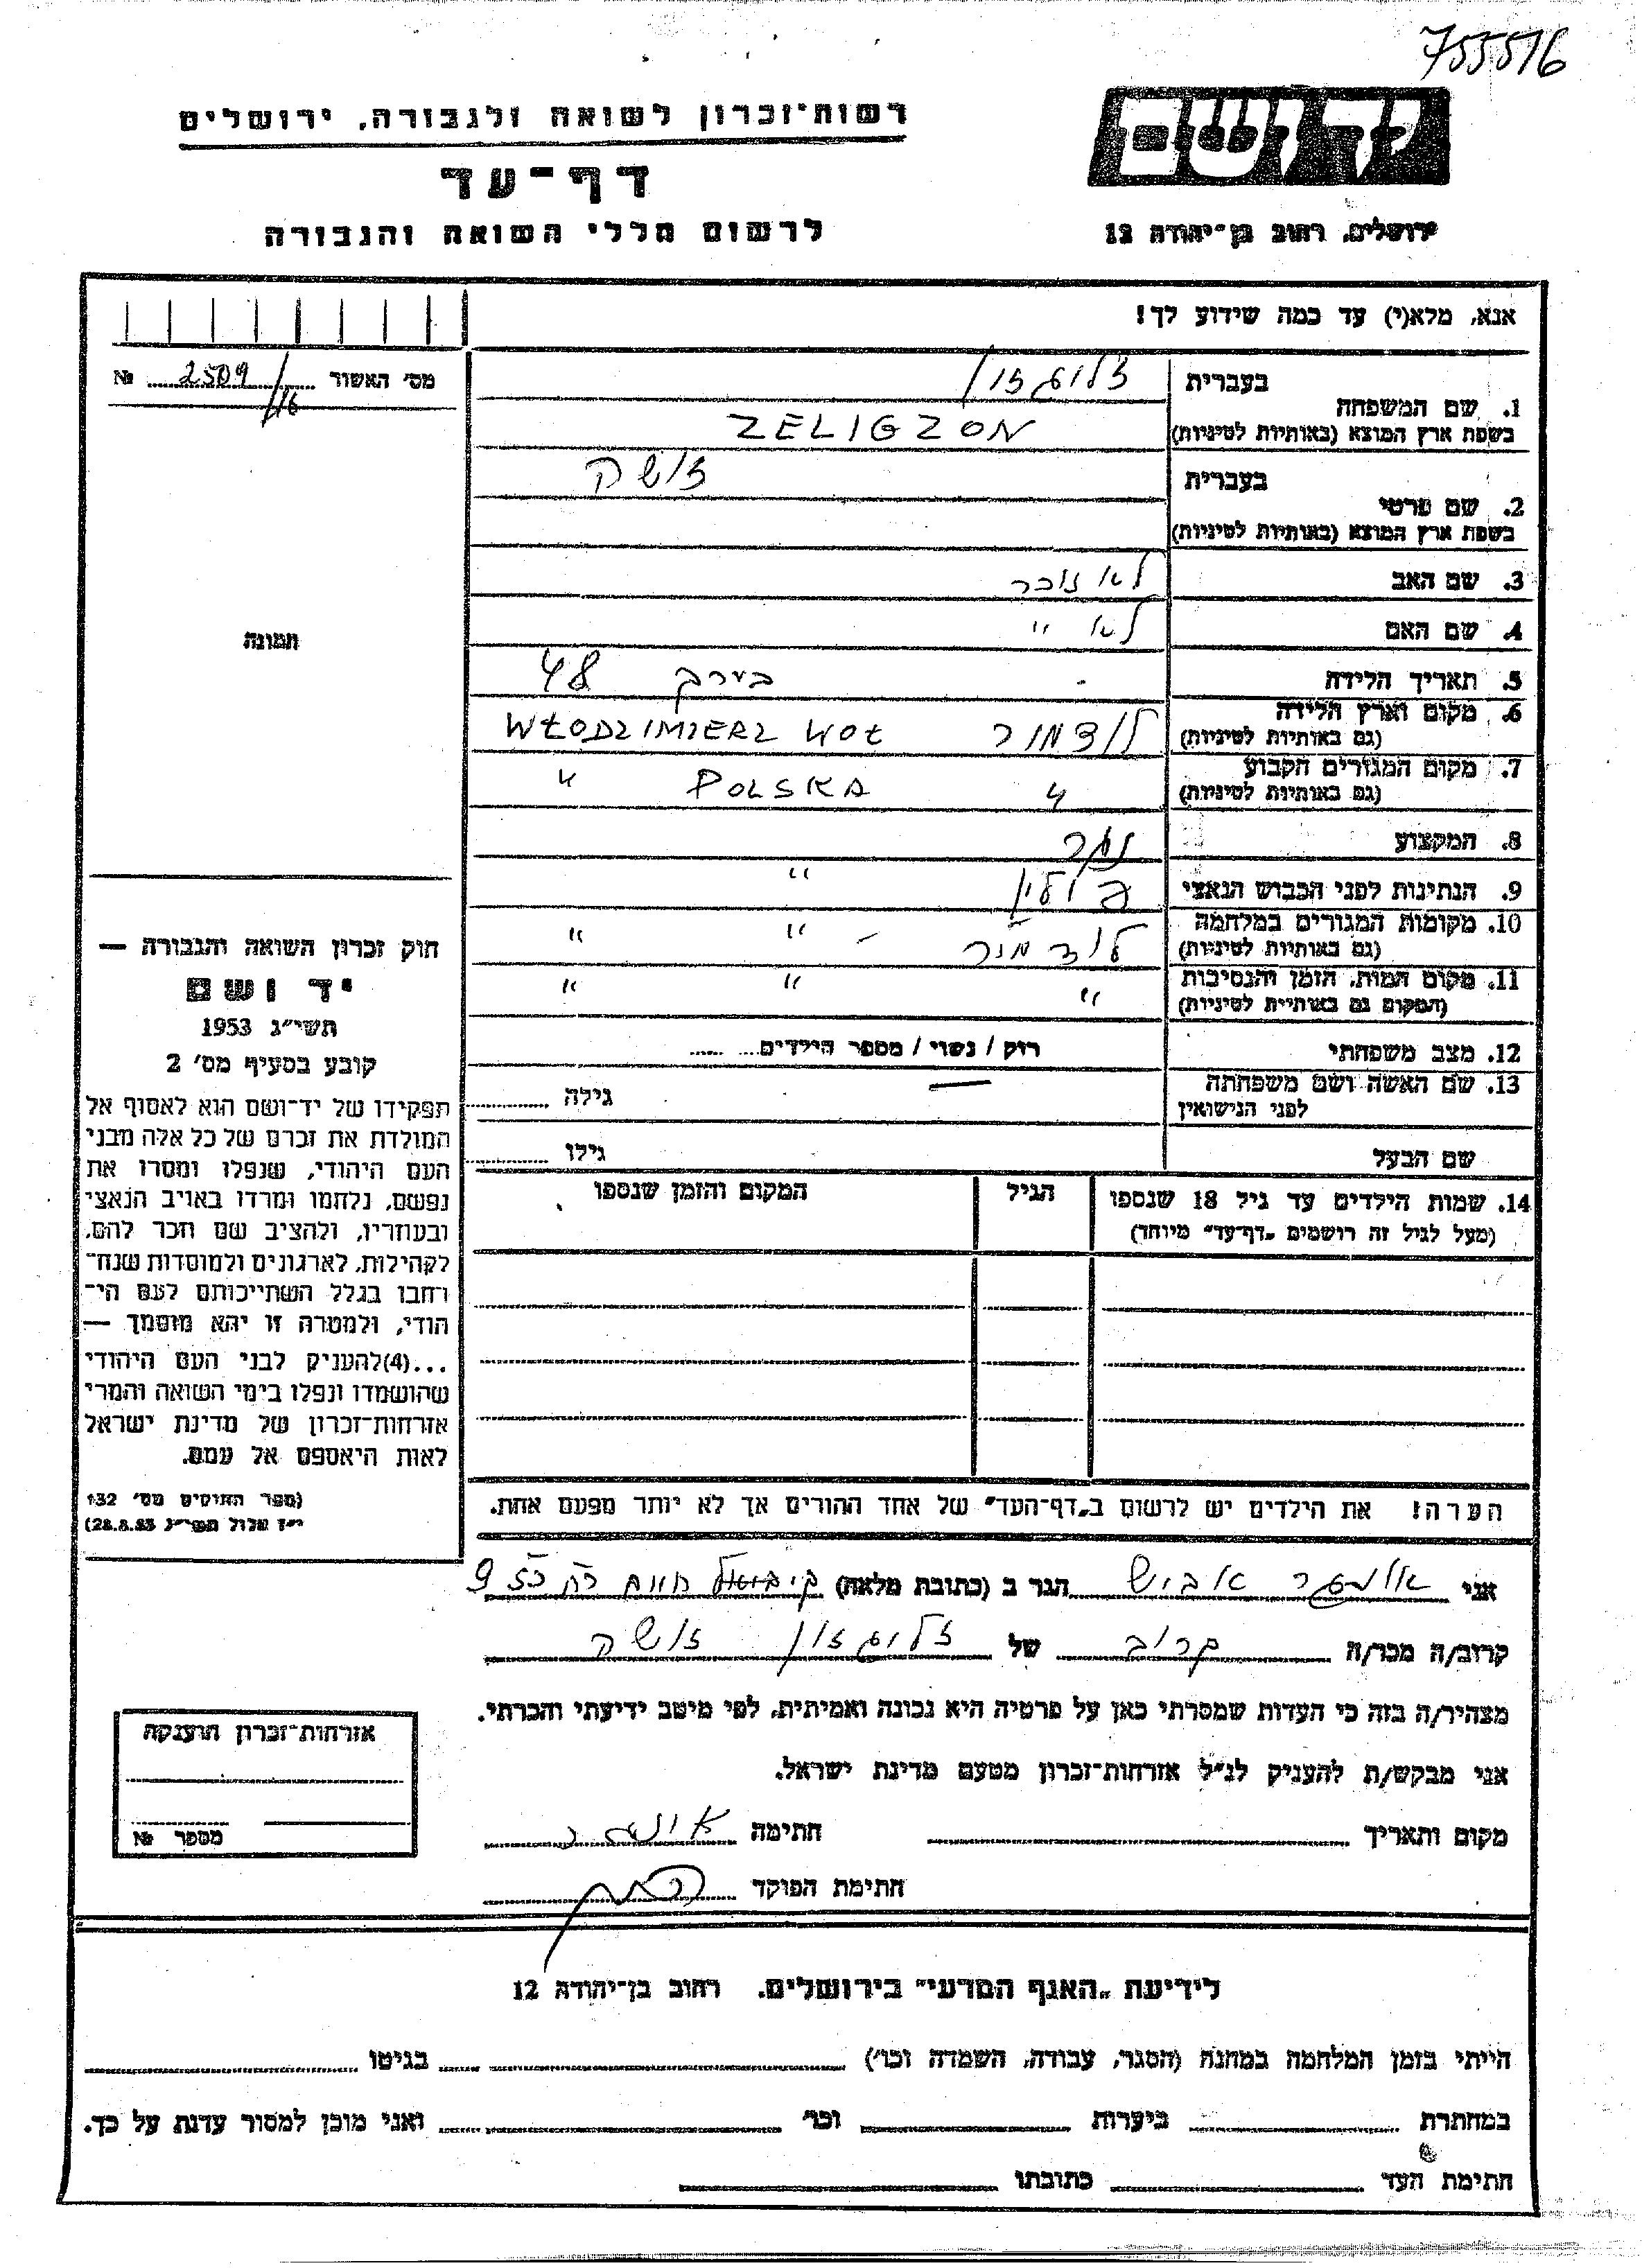 755516
רשות־זכרון לשואה ולגבורה, ירושלים
דף־עד
לרשום חללי השואה והגבורה
יד ושם
ירושלים, רחוב בן־יהודה 12
אנא, מלא(י) עד כמה שידוע לך!
מס׳ האשור 2509/116 №
תמונה
1. שם המשפחה בעברית זליגזון
בשפת ארץ המוצא (באותיות לטיניות) ZELIGZON
2. שם פרטי בעברית זושקה
בשפת ארץ המוצא (באותיות לטיניות)
3. שם האב לא זוכר
4. שם האם לא "
5. תאריך הלידה בערך 48
6. מקום וארץ הלידה (גם באותיות לטיניות) לודמיר WŁODZIMIERZ WOŁ
7. מקום המגורים הקבוע (גם באותיות לטיניות) " POLSKA "
8. המקצוע
9. הנתינות לפני הכבוש הנאצי פולין "
10. מקומות המגורים במלחמה (גם באותיות לטיניות) לודמיר - " "
11. מקום המות, הזמן והנסיבות (המקום גם באותיות לטיניות) " " "
12. מצב משפחתי רוק / נשוי / מספר הילדים
13. שם האשה ושם משפחתה לפני הנישואין — גילה
שם הבעל גילו
14. שמות הילדים עד גיל 18 שנספו הגיל המקום והזמן שנספו
(מעל לגיל זה רושמים „דף־עד" מיוחד)
הערה! את הילדים יש לרשום ב„דף־העד" של אחד ההורים אך לא יותר מפעם אחת.
חוק זכרון השואה והגבורה —
יד ושם
תשי״ג 1953
קובע בסעיף מס׳ 2
תפקידו של יד־ושם הוא לאסוף אל
המולדת את זכרם של כל אלה מבני
העם היהודי, שנפלו ומסרו את
נפשם, נלחמו ומרדו באויב הנאצי
ובעוזריו, ולהציב שם וזכר להם,
לקהילות, לארגונים ולמוסדות שנח־
רחבו בגלל השתייכותם לעם הי־
הודי, ולמטרה זו יהא מוסמך —
...(4)להעניק לבני העם היהודי
שהושמדו ונפלו בימי השואה והמרי
אזרחות־זכרון של מדינת ישראל
לאות היאספם אל עמם.
(ספר החוקים מס׳ 132
י״ז אלול תשי״ג 28.8.53)
אני אביש הגר ב (כתובת מלאה) 9
קרוב/ה מכר/ה קרוב של זליגזון זושקה
מצהיר/ה בזה כי העדות שמסרתי כאן על פרטיה היא נכונה ואמיתית, לפי מיטב ידיעתי והכרתי.
אני מבקש/ת להעניק לנ״ל אזרחות־זכרון מטעם מדינת ישראל.
מקום ותאריך חתימה
חתימת הפוקד
אזרחות־זכרון הוענקה
מספר №
לידיעת „האגף המדעי" בירושלים. רחוב בן־יהודה 12
הייתי בזמן המלחמה במחנה (הסגר, עבודה, השמדה וכו׳) בגיטו
במחתרת ביערות וכו׳ ואני מוכן למסור עדות על כך.
חתימת העד כתובתו